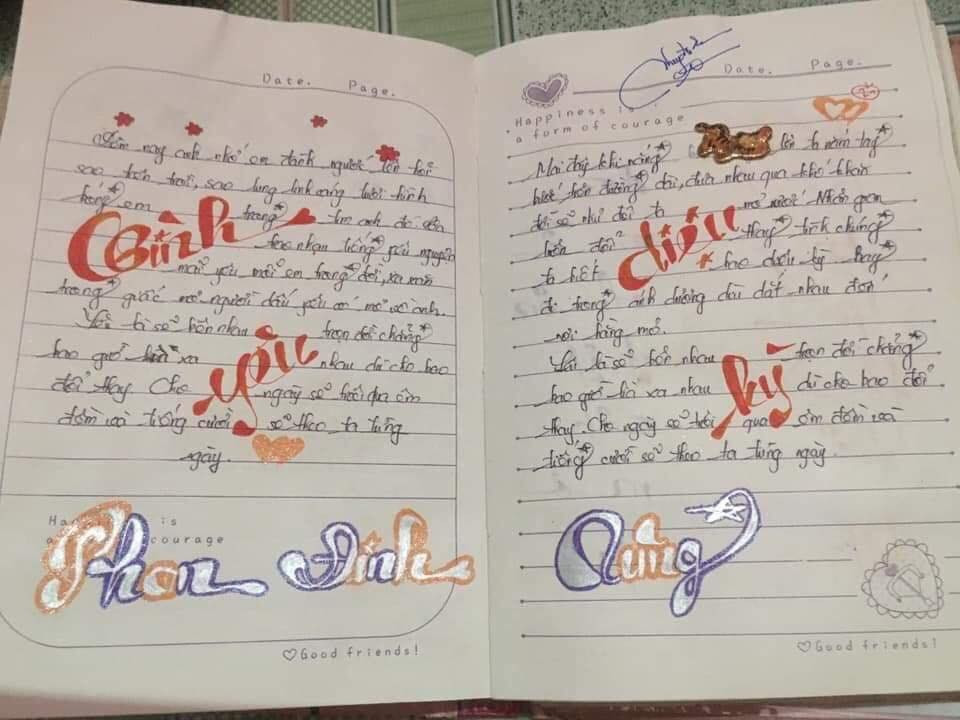 Date. Page.
Đêm nay anh nhớ em tình người lên hơi
sao trên trời, sao lung linh sáng lười hình
trong em trong tim anh đó
Tình
bao nhạn tiếng yêu nguyện
mãi yêu mỗi em trong đời, xa mãi
trong giấc mơ người dấu yêu có mơ về anh.
Yêu là sẽ bên nhau trọn đời chẳng
bao giờ xa nhau dù cho bao
yêu
đổi thay Cho ngày sẽ trôi qua êm
đềm và tiếng cười sẽ theo ta từng
ngày.
Happiness is
a form of courage
Phan Đình
Good friends!
Date. Page.
Happiness is
a form of courage
Mai đây khi nắng lên ta nắm tay
bước trên đường dài, đưa nhau qua khó khăn
đời sẽ như đôi ta mơ ước Nhân gian
diệu
trên đời thay tình chúng
ta hết bao diệu kỳ hay
đi trong ánh dương dìu dắt nhau đến
nơi hằng mơ.
Yêu là sẽ bên nhau trọn đời chẳng
kỳ
bao giờ lìa xa nhau dù cho bao đổi
thay. Cho ngày sẽ trôi qua êm đềm và
tiếng cười sẽ theo ta từng ngày.
Tùng
Good friends!